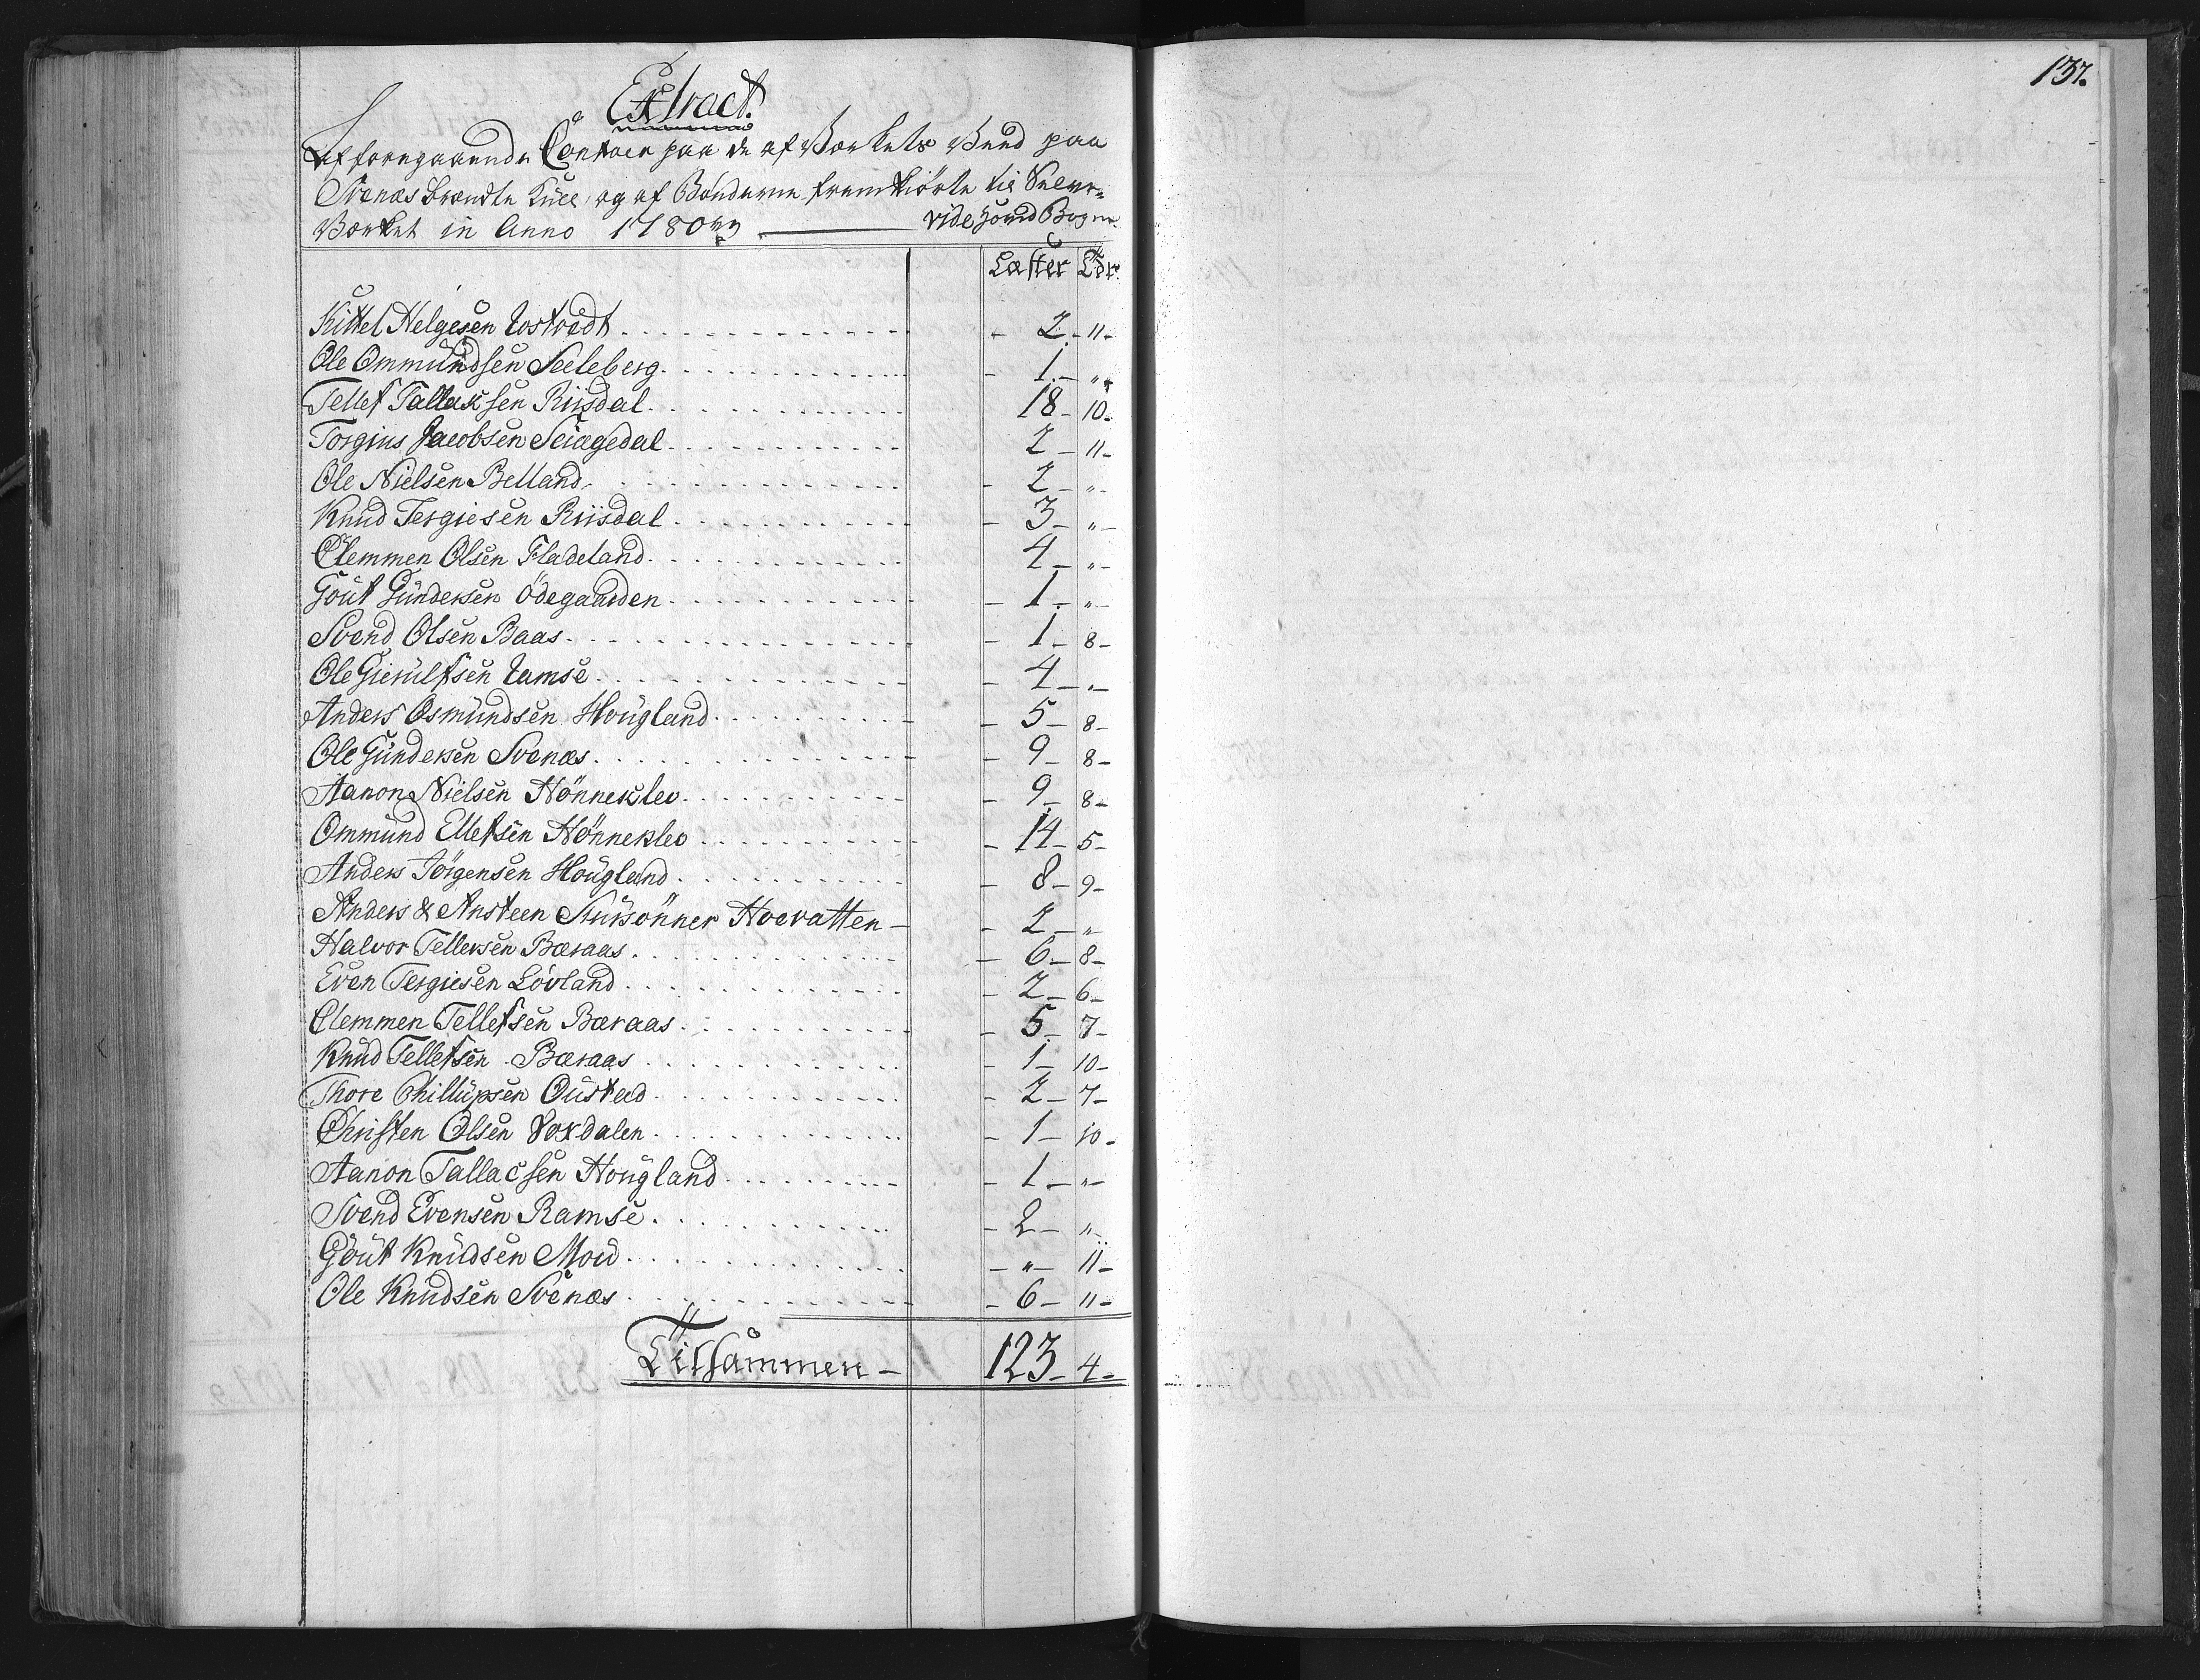 137.
Extract.
Af foregaaende Contoer paa de af Værkets Veed paa
Svenæs brændte Kull, og af Bönderne fremkiörte til
Værket in Anno 1780 vide Bogen.
Læster Tdr.
Kittel Helgesen Tostvedt - 2 - 11 -
Ole Ommundsen Seeleberg - 1 - "
Tellef Tallaksen Riisdal 18 - 10 -
Torgius Jacobsen 2 - 11 -
Ole Nielsen Belland - 2 - " -
Knud Tergiesen Riisdal - 3 - " -
Clemmen Olsen Fladeland 4 - " -
Gout Gundersen Ödegaarden - 1 - " -
Svend Olsen Baas - 1 - 8 -
Ole Gierulfsen - 4 - " -
Anders Osmundsen Hougland - 5 - 8 -
Ole Gundersen Svenæs - 9 - 8 -
Aanon Nielsen Hönneklev - 9 - 8 -
Ommund Ellefsen Hönneklev - 14 - 5 -
Anders Jörgensen Hougland - 8 - 9 -
Anders & Ansteen Hovatten - - 2 - " -
Halvor Tellefsen Bæraas - 6 - 8 -
Even Tergiesen Lövland - 2 - 6 -
Clemmen Tellefsen Bæraas - 5 - 7 -
Knud Tellefsen Bæraas - 1 - 10 -
Thore Phillupsen Oustad - 2 - 7 -
Christen Olsen - 1 - 10 -
Aanon Tallacsen Hougland - 1 - " -
Svend Evensen Ramse - 2 - " -
Gout Knudsen Moe - " - 11 -
Ole Knudsen Svenæs - 6 - 11 -
Tilsammen - 123 - 4 -